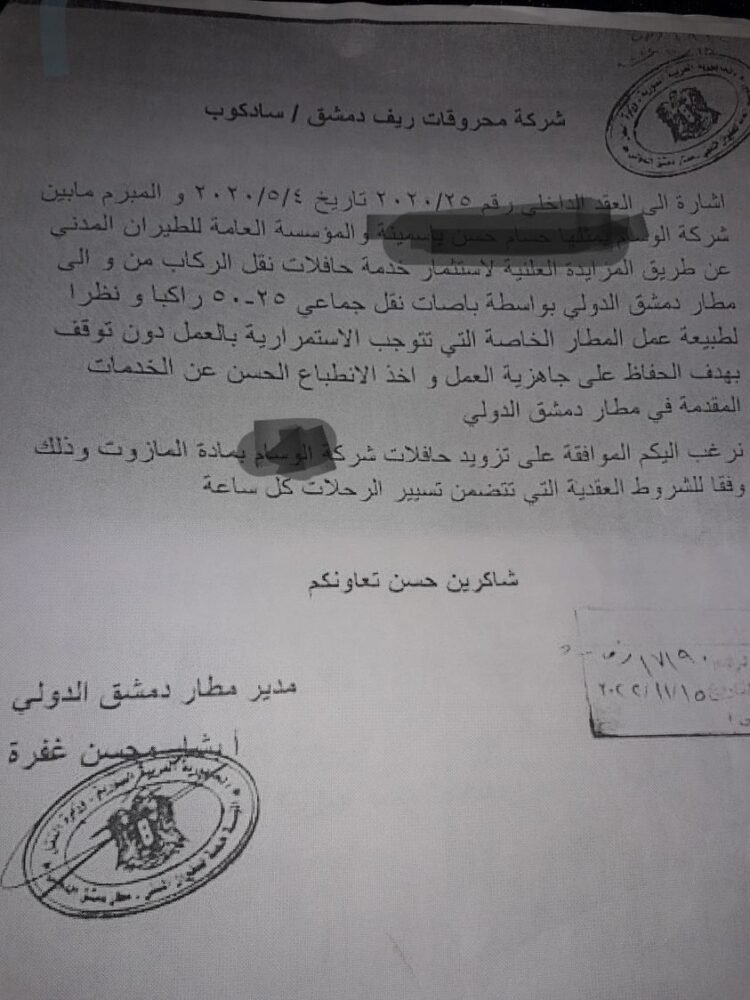 شركة محروقات ريف دمشق / سادكوب
اشارة الى العقد الداخلي رقم ٢٠٢٠/٢٥ تاريخ ٢٠٢٠/٥/٤ و المبرم مابين
شركة الوسام يمثلها حسام حسن ياسمينة والمؤسسة العامة للطيران المدني
عن طريق المزايدة العلنية لاستثمار خدمة حافلات نقل الركاب من و الى
مطار دمشق الدولي بواسطة باصات نقل جماعي ٢٥-٥٠ راكبا و نظرا
لطبيعة عمل المطار الخاصة التي تتوجب الاستمرارية بالعمل دون توقف
بهدف الحفاظ على جاهزية العمل و اخذ الانطباع الحسن عن الخدمات
المقدمة في مطار دمشق الدولي
نرغب اليكم الموافقة على تزويد حافلات شركة الوسام بمادة المازوت وذلك
وفقا للشروط العقدية التي تتضمن تسيير الرحلات كل ساعة
شاكرين حسن تعاونكم
١٧١٩٠
٢٠٢٢/١١/١٥
مدير مطار دمشق الدولي
محسن غفرة
الجمهورية العربية السورية